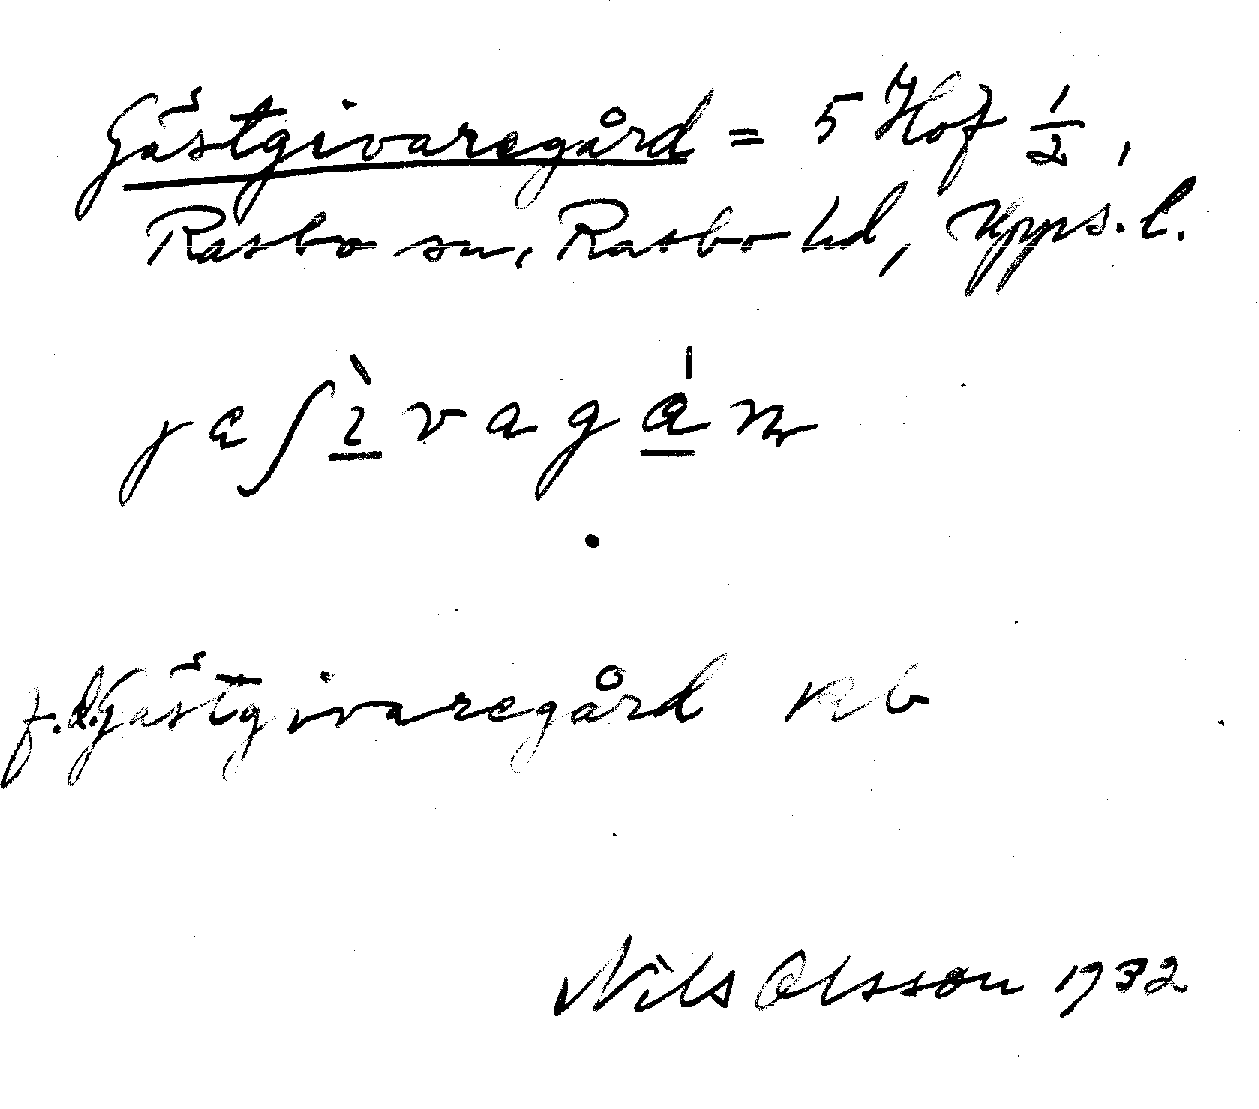 Gästgivaregård = 5 Hof 1/2,
Rasbo sn, Rasbo hd, Upps. l.
f.d. Gästgivaregård
Nils Olsson 1932